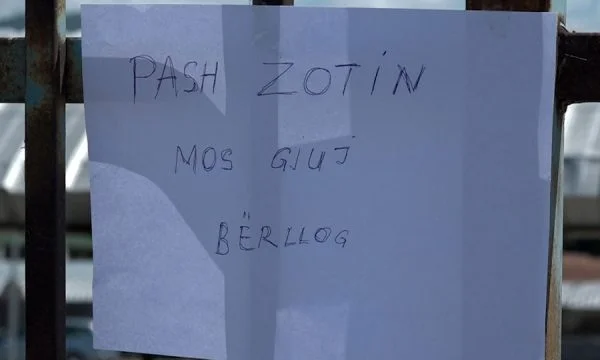 PASH ZOTİN
MOS GJUJ
BËRLLOG